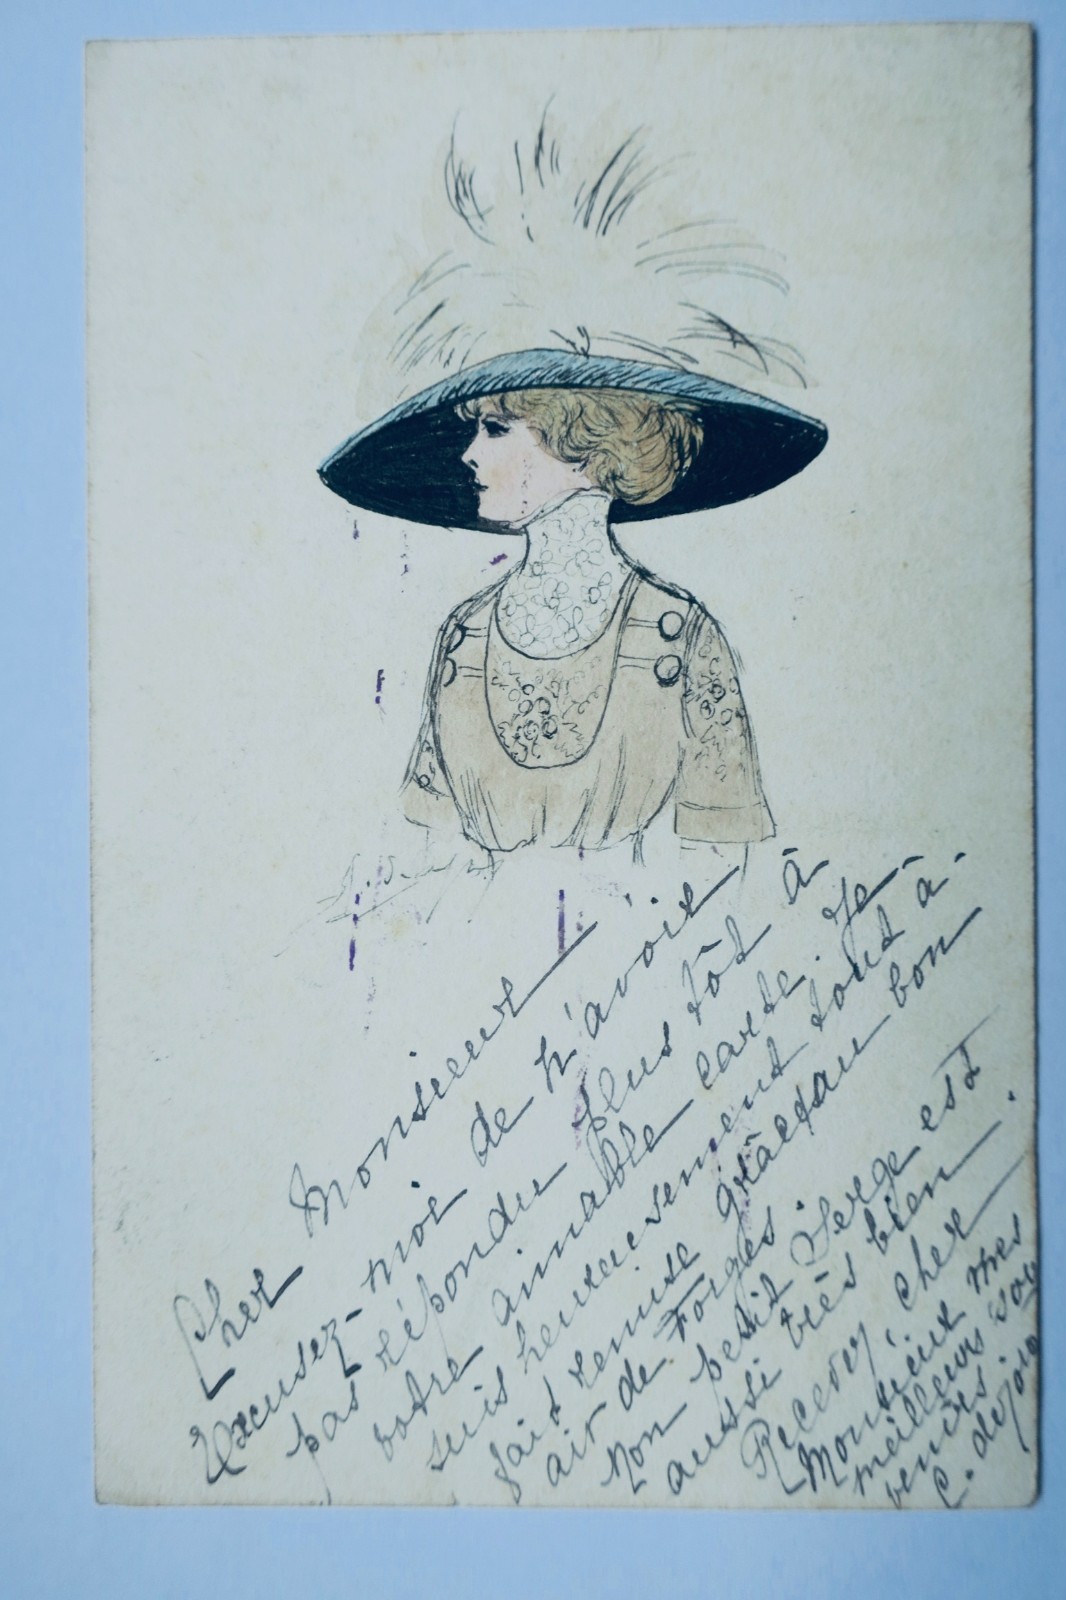 Cher Monsieur
Excusez-moi de n'avoir
pas répondu plus tôt à
votre aimable carte. Je
suis heureusement tout à-
fait remise grâce au bon
air de Forges.
Mon petit Serge est
aussi très bien.
Recevez, cher
Monsieur mes
meilleurs sou
venirs